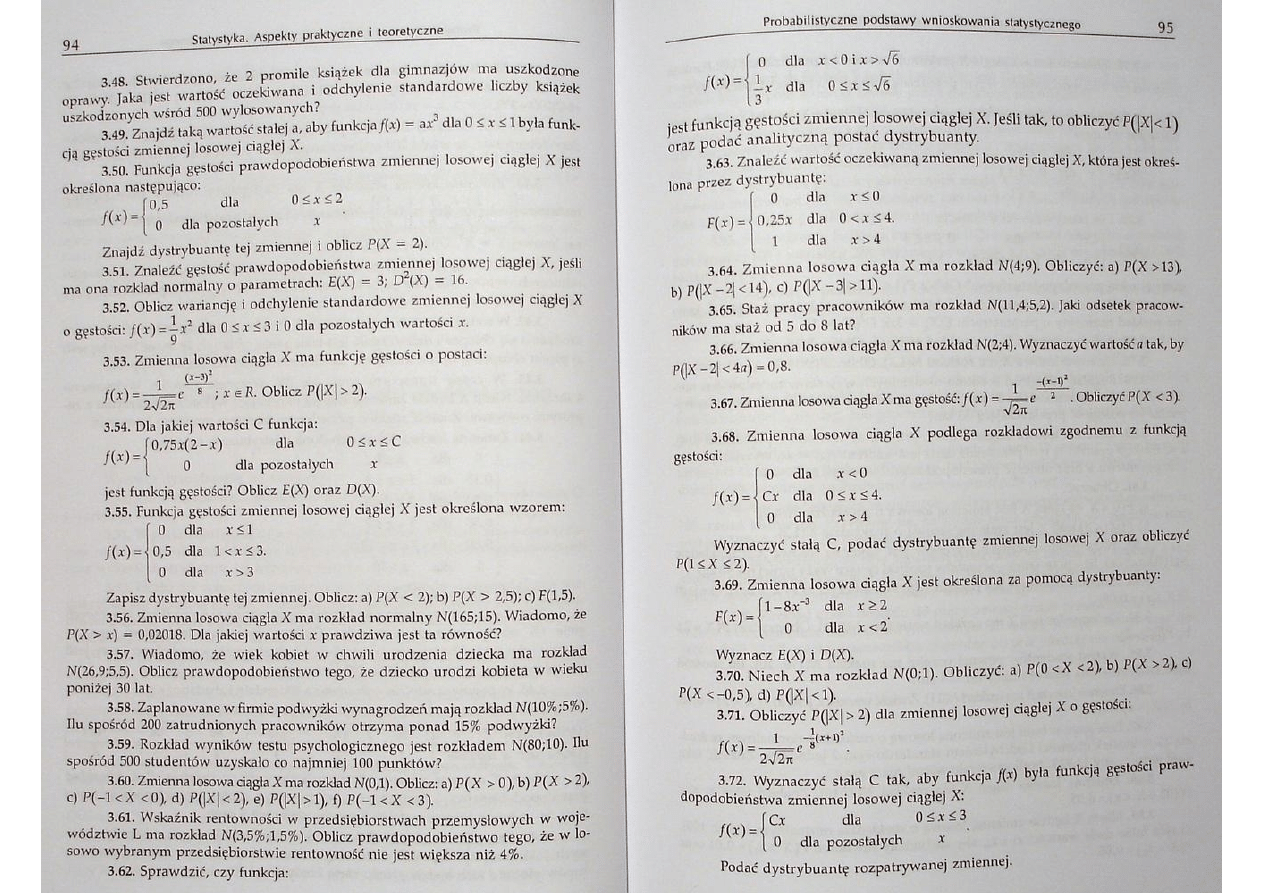 94 Statystyka. Aspekty praktyczne i teoretyczne
3.48. Stwierdzono, że 2 promile książek dla gimnazjów ma uszkodzone
oprawy. Jaka jest wartość oczekiwana i odchylenie standardowe liczby książek
uszkodzonych wśród 500 wylosowanych?
3.49. Znajdź taką wartość stałej a, aby funkcja f(x) = ax³ dla 0 ≤ x ≤ 1 była funk-
cją gęstości zmiennej losowej ciągłej X.
3.50. Funkcja gęstości prawdopodobieństwa zmiennej losowej ciągłej X jest
określona następująco:
f(x) = { 0,5 dla 0 ≤ x ≤ 2
0 dla pozostałych x .
Znajdź dystrybuantę tej zmiennej i oblicz P(X = 2).
3.51. Znaleźć gęstość prawdopodobieństwa zmiennej losowej ciągłej X, jeśli
ma ona rozkład normalny o parametrach: E(X) = 3; D²(X) = 16.
3.52. Oblicz wariancję i odchylenie standardowe zmiennej losowej ciągłej X
o gęstości: f(x) = 1/9 x² dla 0 ≤ x ≤ 3 i 0 dla pozostałych wartości x.
3.53. Zmienna losowa ciągła X ma funkcję gęstości o postaci:
f(x) = 1/(2√2π) e^((x-3)²/8) ; x ∈ R. Oblicz P(|X| > 2).
3.54. Dla jakiej wartości C funkcja:
f(x) = { 0,75x(2-x) dla 0 ≤ x ≤ C
0 dla pozostałych x
jest funkcją gęstości? Oblicz E(X) oraz D(X).
3.55. Funkcja gęstości zmiennej losowej ciągłej X jest określona wzorem:
0 dla x ≤ 1
f(x) = { 0,5 dla 1 < x ≤ 3.
0 dla x > 3
Zapisz dystrybuantę tej zmiennej. Oblicz: a) P(X < 2); b) P(X > 2,5); c) F(1,5).
3.56. Zmienna losowa ciągła X ma rozkład normalny N(165;15). Wiadomo, że
P(X > x) = 0,02018. Dla jakiej wartości x prawdziwa jest ta równość?
3.57. Wiadomo, że wiek kobiet w chwili urodzenia dziecka ma rozkład
N(26,9;5,5). Oblicz prawdopodobieństwo tego, że dziecko urodzi kobieta w wieku
poniżej 30 lat.
3.58. Zaplanowane w firmie podwyżki wynagrodzeń mają rozkład N(10%;5%).
Ilu spośród 200 zatrudnionych pracowników otrzyma ponad 15% podwyżki?
3.59. Rozkład wyników testu psychologicznego jest rozkładem N(80;10). Ilu
spośród 500 studentów uzyskało co najmniej 100 punktów?
3.60. Zmienna losowa ciągła X ma rozkład N(0,1). Oblicz: a) P(X > 0), b) P(X > 2),
c) P(-1 < X < 0), d) P(|X| < 2), e) P(|X| > 1), f) P(-1 < X < 3).
3.61. Wskaźnik rentowności w przedsiębiorstwach przemysłowych w woje-
wództwie L ma rozkład N(3,5%;1,5%). Oblicz prawdopodobieństwo tego, że w lo-
sowo wybranym przedsiębiorstwie rentowność nie jest większa niż 4%.
3.62. Sprawdzić, czy funkcja:
Probabilistyczne podstawy wnioskowania statystycznego 95
f(x) = { 0 dla x < 0 i x > √6
1/3 x dla 0 ≤ x ≤ √6
jest funkcją gęstości zmiennej losowej ciągłej X. Jeśli tak, to obliczyć P(|X| < 1)
oraz podać analityczną postać dystrybuanty.
3.63. Znaleźć wartość oczekiwaną zmiennej losowej ciągłej X, która jest okreś-
lona przez dystrybuantę:
0 dla x ≤ 0
F(x) = { 0,25x dla 0 < x ≤ 4.
1 dla x > 4
3.64. Zmienna losowa ciągła X ma rozkład N(4;9). Obliczyć: a) P(X > 13),
b) P(|X - 2| < 14), c) P(|X - 3| > 11).
3.65. Staż pracy pracowników ma rozkład N(11,4;5,2). Jaki odsetek pracow-
ników ma staż od 5 do 8 lat?
3.66. Zmienna losowa ciągła X ma rozkład N(2;4). Wyznaczyć wartość a tak, by
P(|X - 2| < 4a) = 0,8.
3.67. Zmienna losowa ciągła X ma gęstość: f(x) = 1/√2π e^(-(x-1)²/2) . Obliczyć P(X < 3).
3.68. Zmienna losowa ciągła X podlega rozkładowi zgodnemu z funkcją
gęstości:
0 dla x < 0
f(x) = { Cx dla 0 ≤ x ≤ 4.
0 dla x > 4
Wyznaczyć stałą C, podać dystrybuantę zmiennej losowej X oraz obliczyć
P(1 ≤ X ≤ 2).
3.69. Zmienna losowa ciągła X jest określona za pomocą dystrybuanty:
F(x) = { 1 - 8x⁻³ dla x ≥ 2
0 dla x < 2 .
Wyznacz E(X) i D(X).
3.70. Niech X ma rozkład N(0;1). Obliczyć: a) P(0 < X < 2), b) P(X > 2), c)
P(X < -0,5), d) P(|X| < 1).
3.71. Obliczyć P(|X| > 2) dla zmiennej losowej ciągłej X o gęstości:
f(x) = 1/(2√2π) e^(-1/8(x+1)²) .
3.72. Wyznaczyć stałą C tak, aby funkcja f(x) była funkcją gęstości praw-
dopodobieństwa zmiennej losowej ciągłej X:
f(x) = { Cx dla 0 ≤ x ≤ 3
0 dla pozostałych x .
Podać dystrybuantę rozpatrywanej zmiennej.